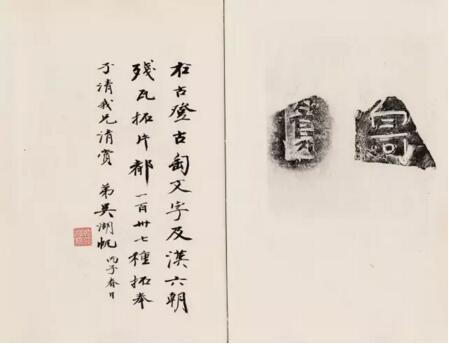 右古登古匋文字及漢六朝
殘瓦拓片都一百卅七種拓奉
子清我兄清賞 弟吳湖帆 丙子春日